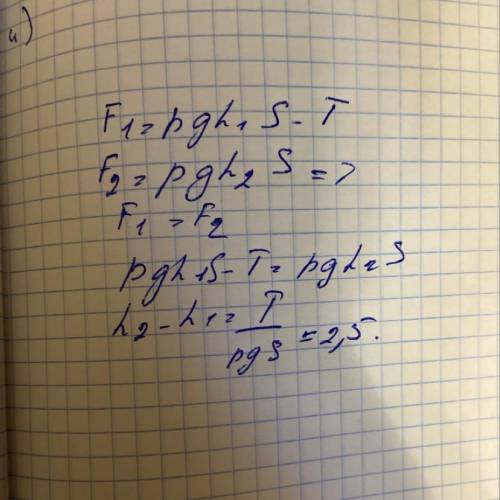 и)
F₁ = pgh₁ S - T
F₂ = pgh₂ S =>
F₁ = F₂
pgh₁S - T = pgh₂S
h₂ - h₁ = T/pgS = 2,5.